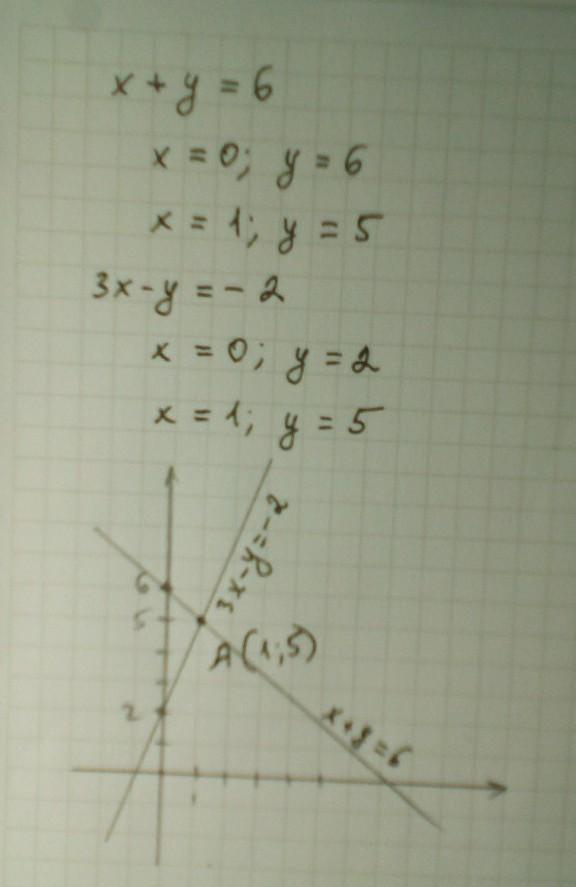 x + y = 6
x = 0; y = 6
x = 1; y = 5
3x - y = - 2
x = 0; y = 2
x = 1; y = 5
3x - y = -2
6
5
A(1;5)
2
x + y = 6
1